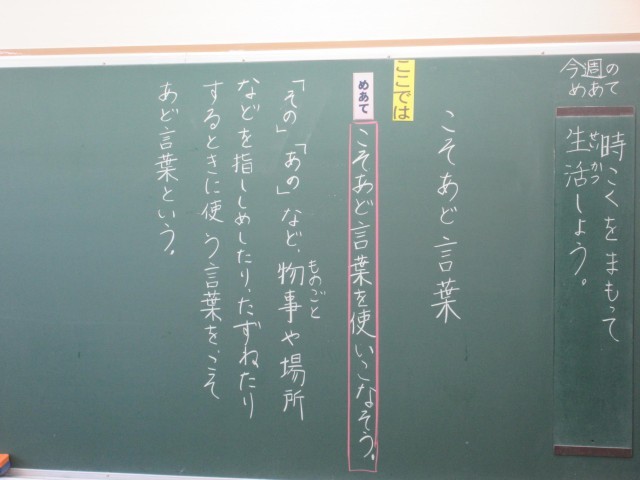 今週の
めあて
時こくをまもって
生活しよう。
せいかつ
こそあど言葉
ここでは
めあて
こそあど言葉を使いこなそう。
「その」「あの」など、物事や場所
ものごと
などを指ししめしたり、たずねたり
するときに使う言葉を、こそ
あど言葉という。